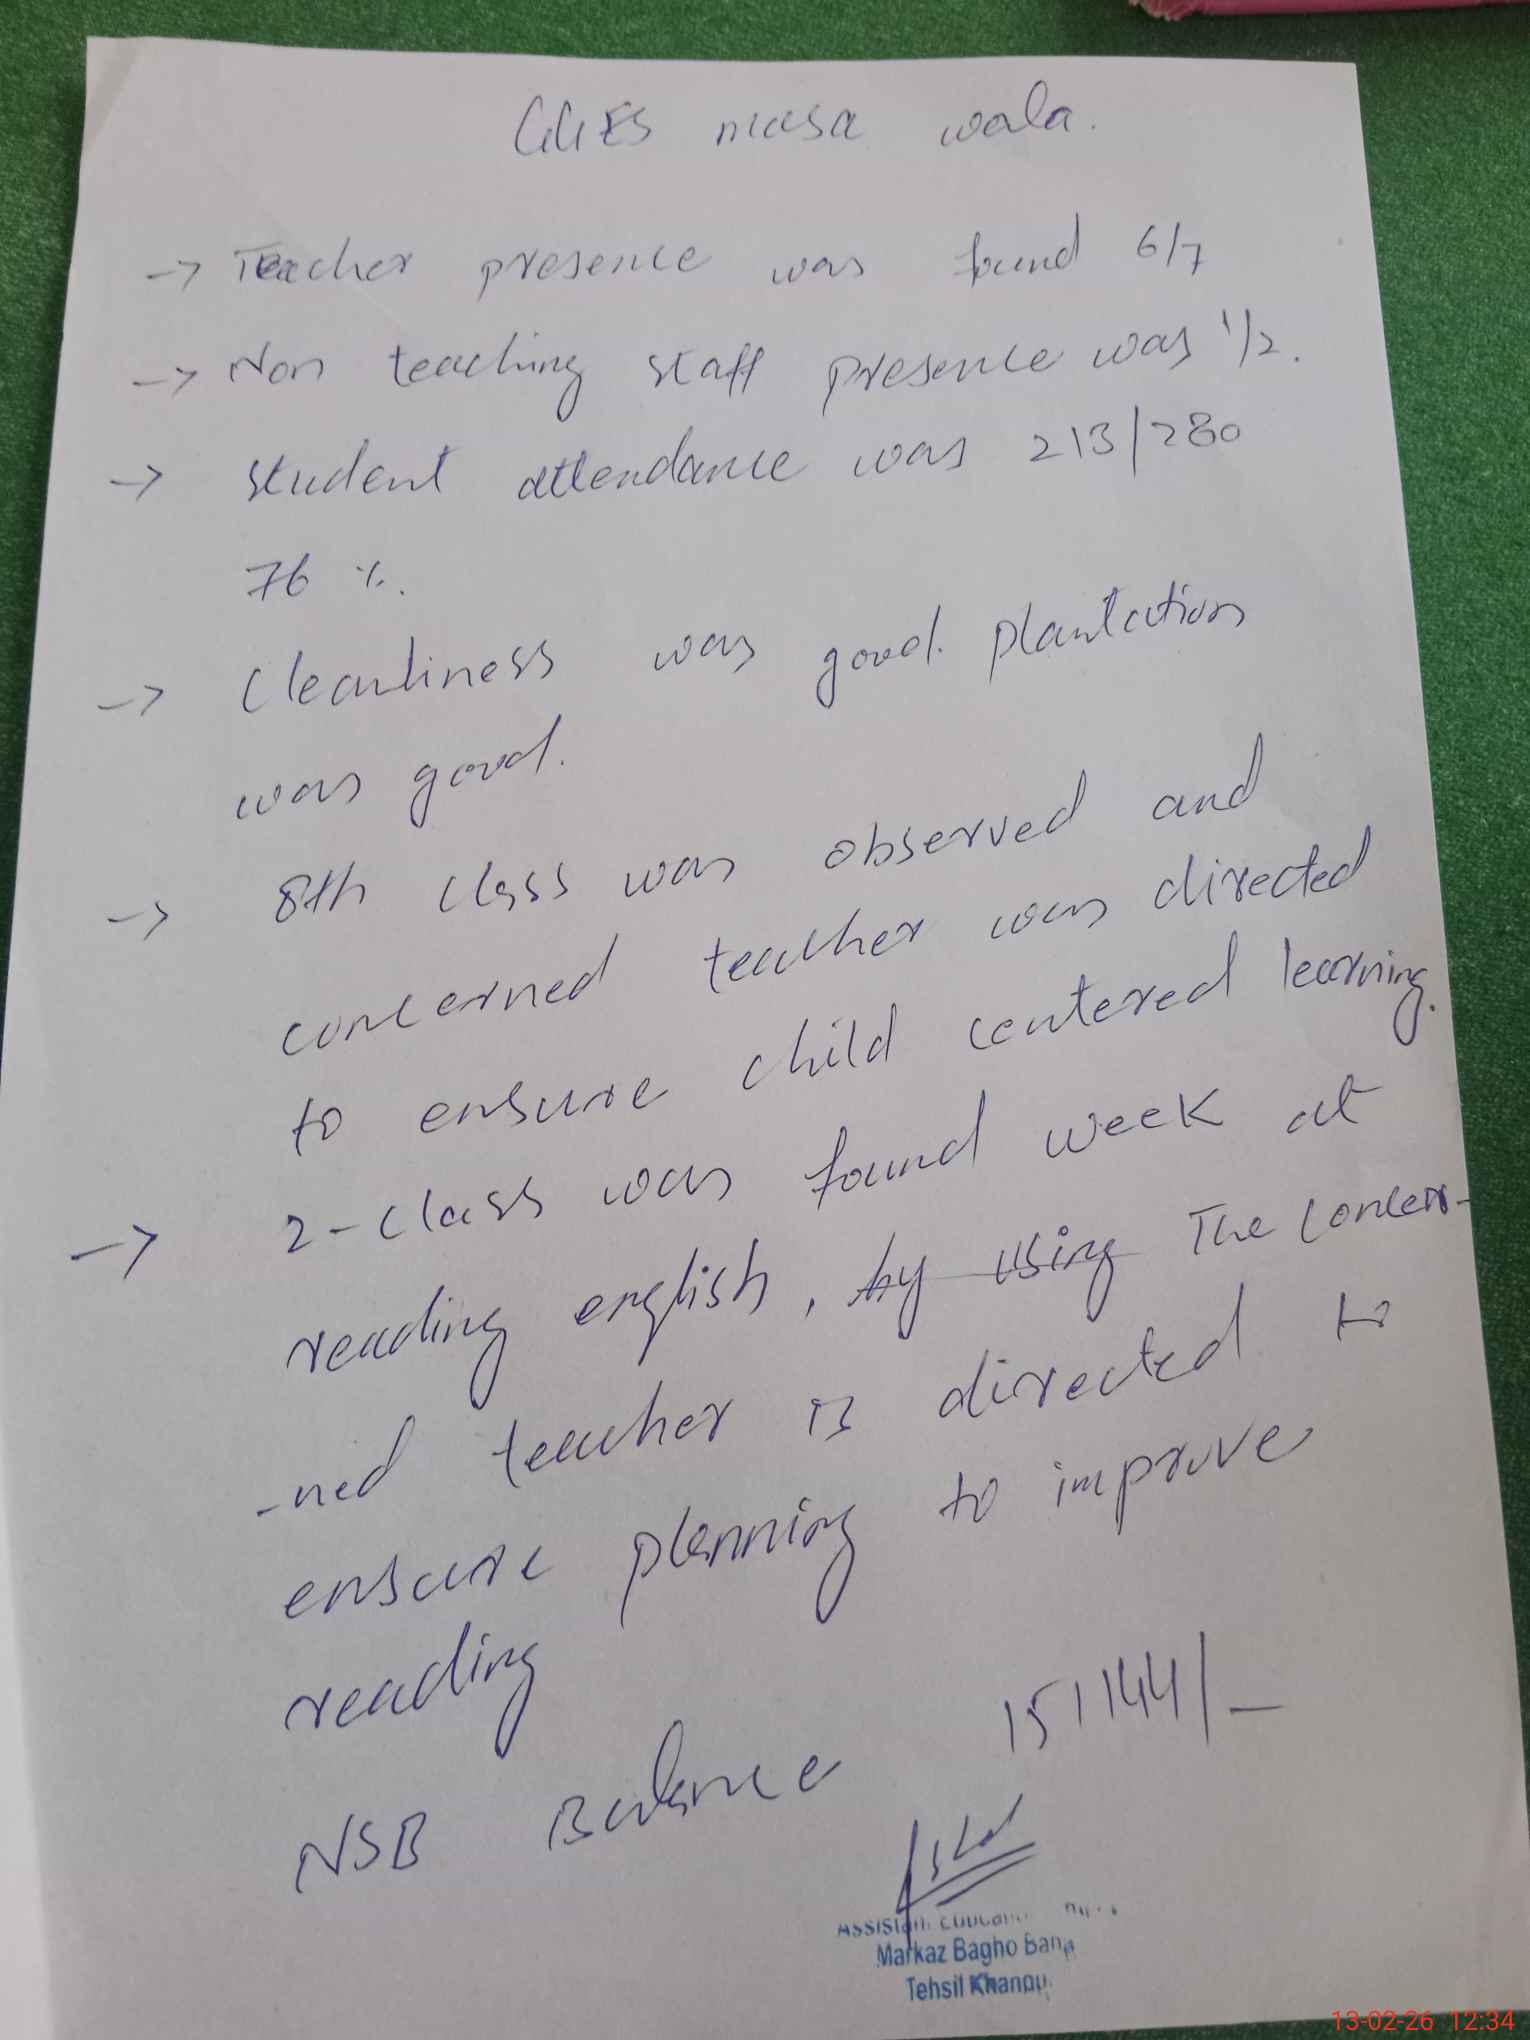 GGES musa wala.
→ Teacher presence was found 6/7
→ Non teaching staff presence was 1/2.
→ student attendance was 213/280
76 %.
→ Cleanliness was good. plantation
was good.
→ 8th class was observed and
concerned teacher was directed
to ensure child centered learning.
→ 2-class was found week at
reading english, by using The concer-
-ned teacher is directed to
ensure planning to improve
reading
NSB Balance 151144/-
Assistant
Markaz Bagho Bah
Tehsil Khanpu
13-02-26 12:34